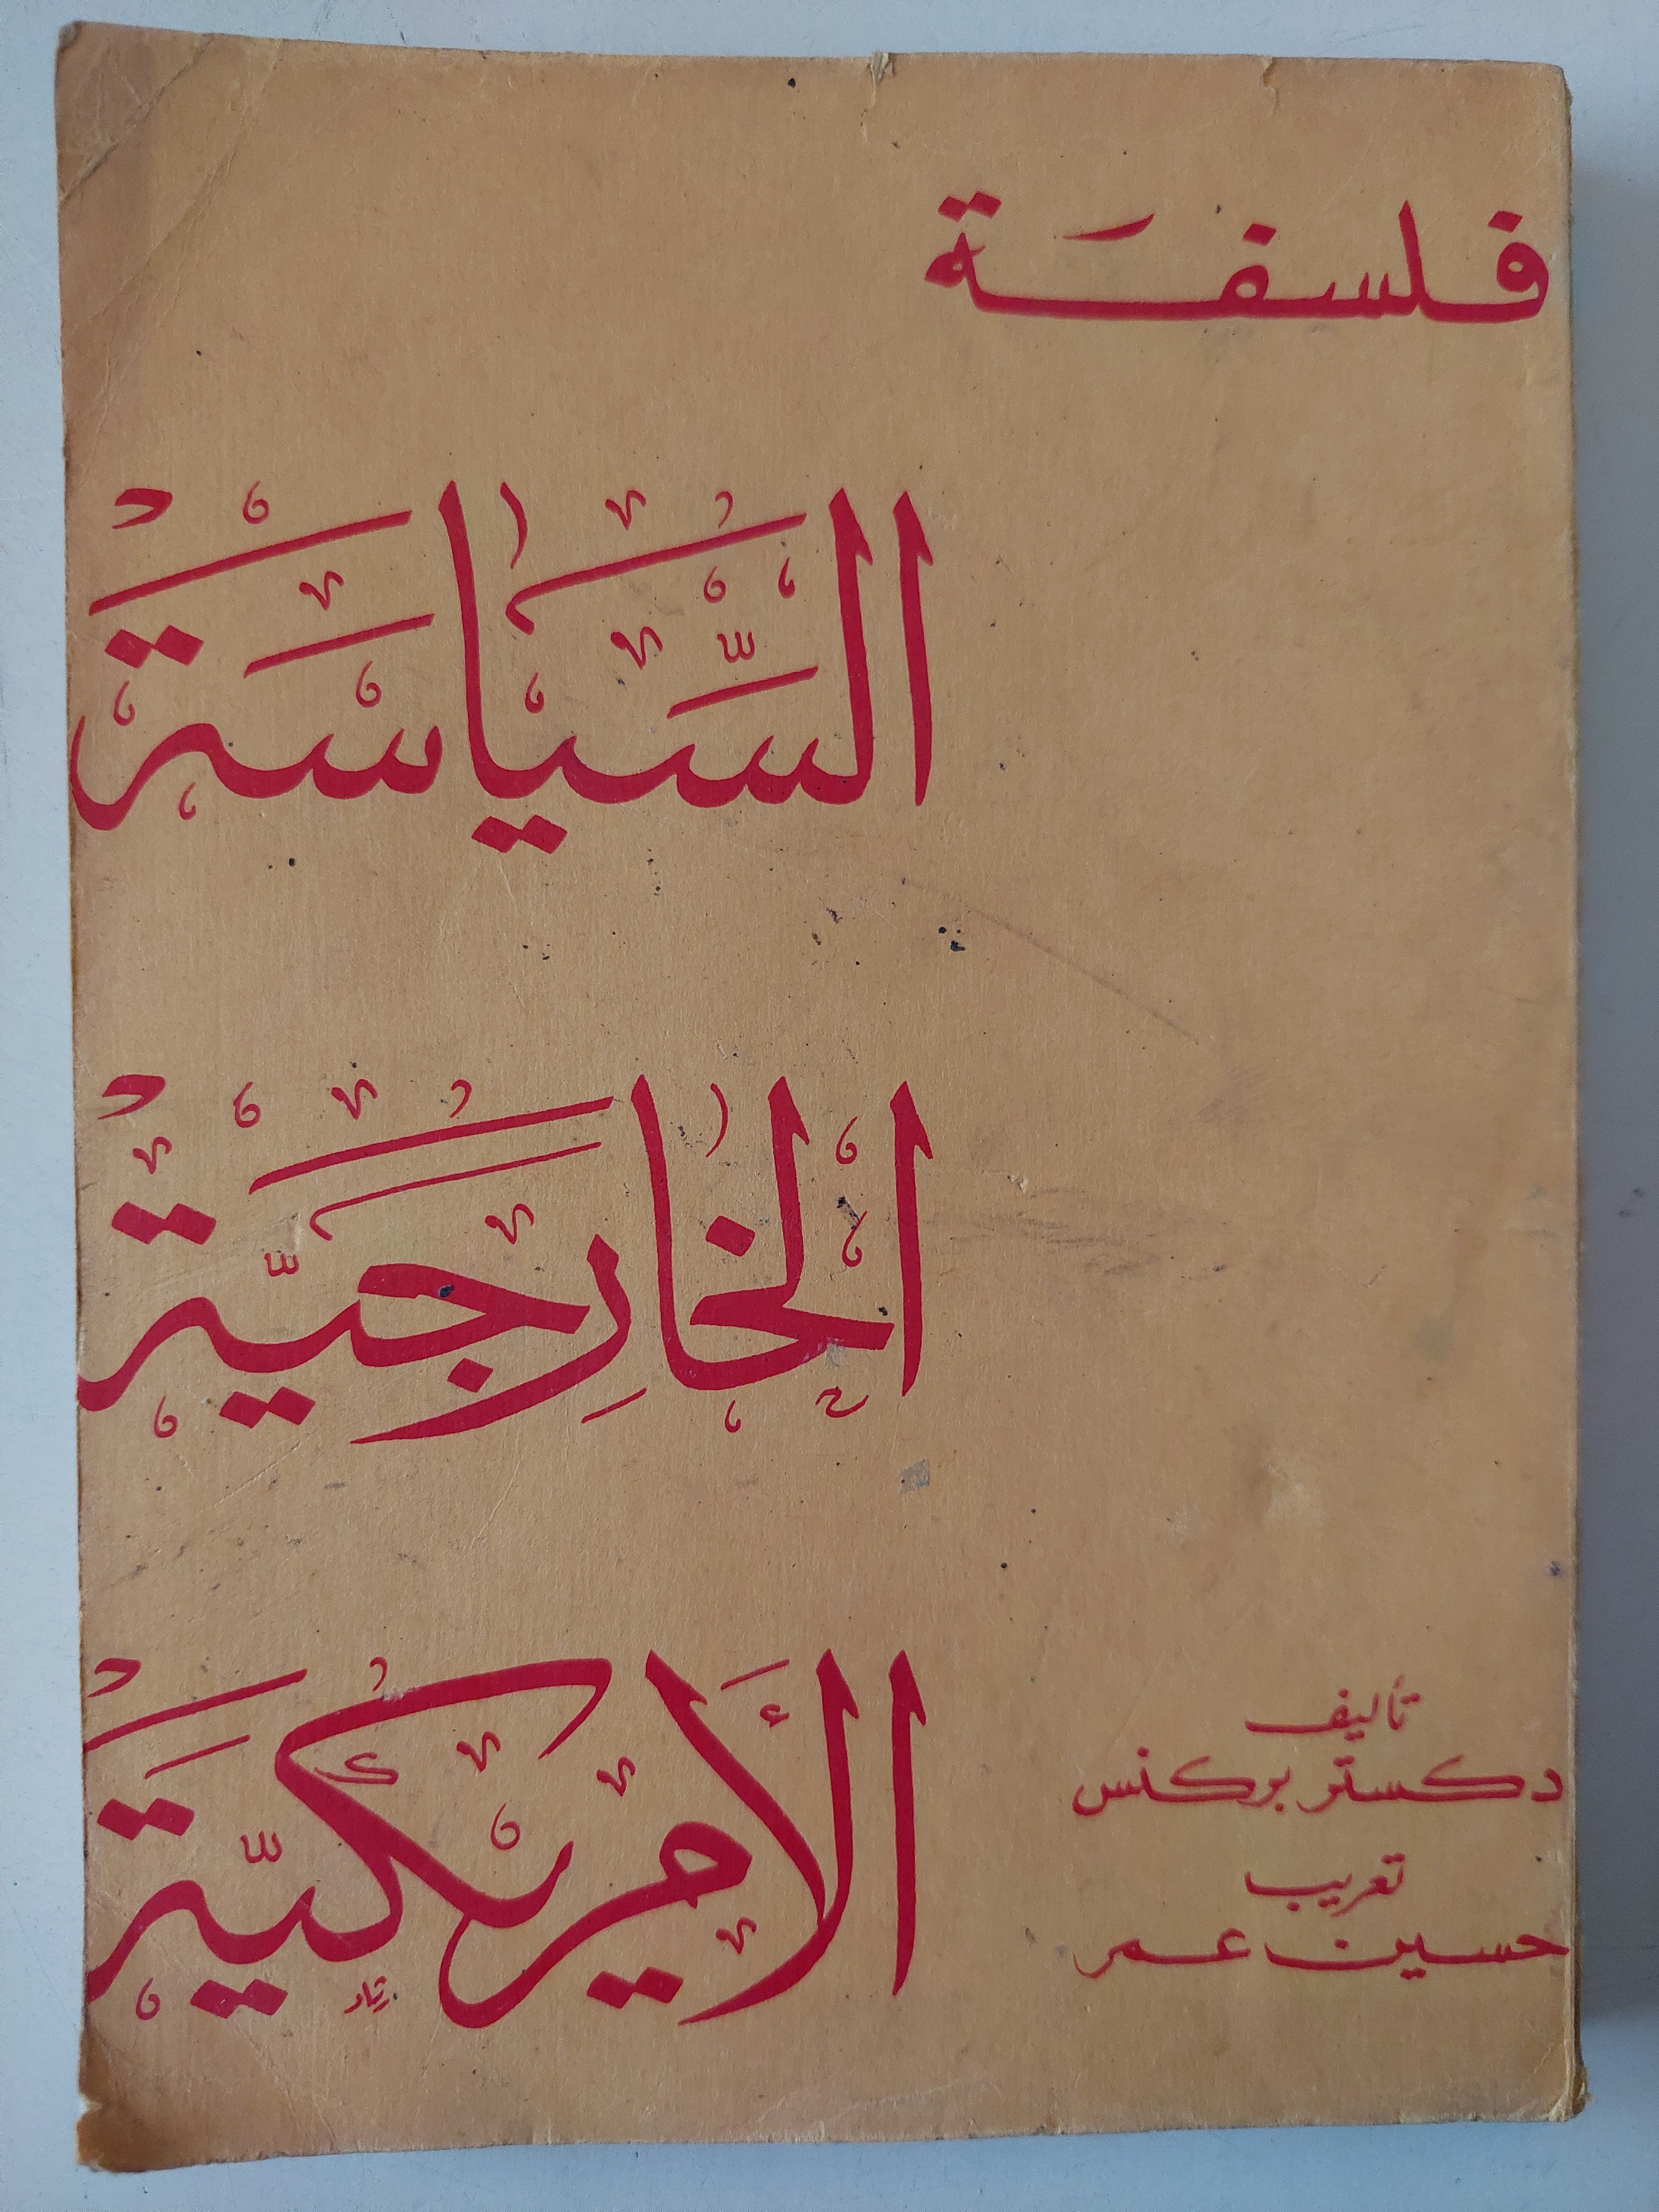 فلسفة
السياسة
الخارجية
الأمريكية
تأليف
دكستر بركنس
تعريب
حسين عمر